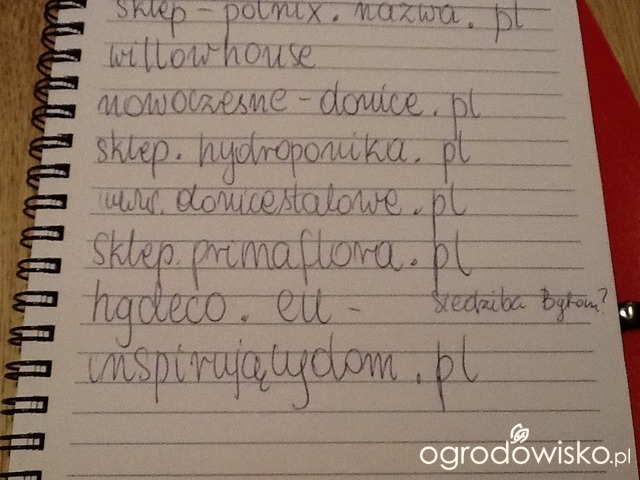 sklep-polnix.nazwa.pl
willowhouse
nowoczesne-donice.pl
sklep.hydroponika.pl
www.donicestalowe.pl
sklep.primaflora.pl
hgdeco.eu - siedziba Bytom?
inspirującydom.pl
ogrodowisko.pl